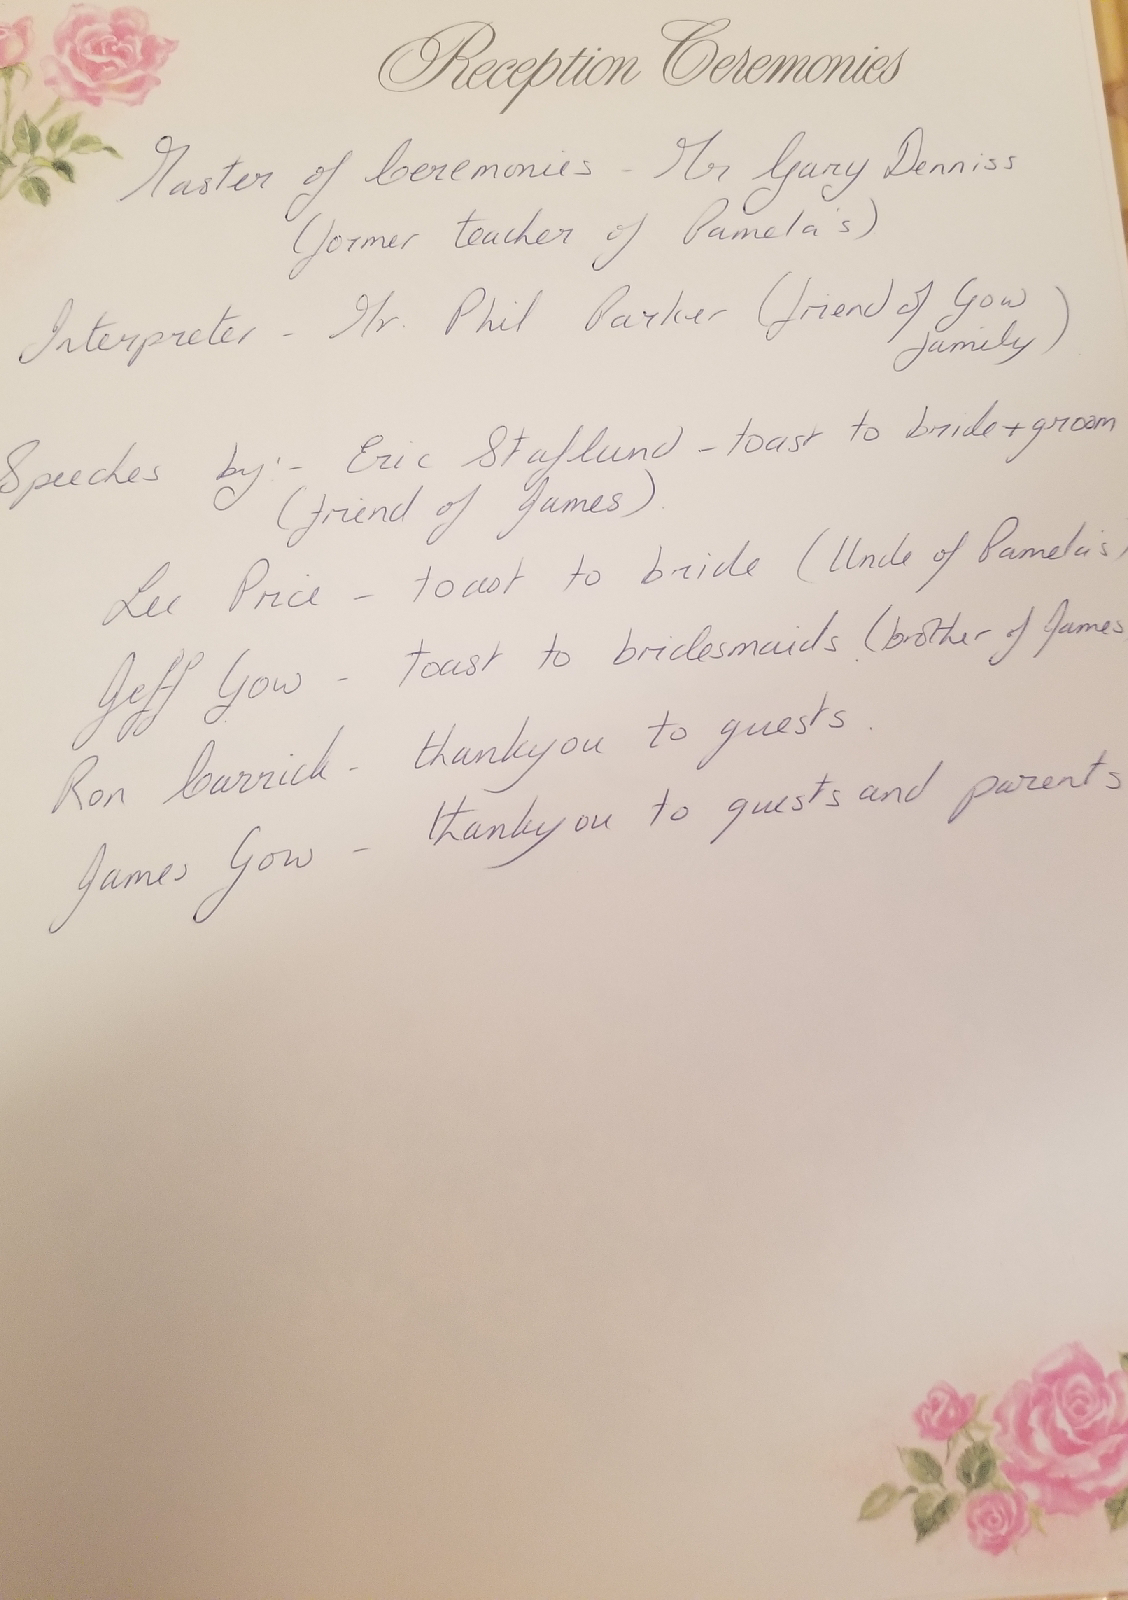 Reception Ceremonies
Master of Ceremonies - Mr Gary Denniss
(former teacher of Pamela's)
Interpreter - Mr. Phil Parker (friend of Gow
family)
Speeches by:- Eric Staflund - toast to bride + groom
(friend of James).
Lee Price - toast to bride (Uncle of Pamela's)
Jeff Gow - toast to bridesmaids (brother of James
Ron Carrick - thankyou to guests.
James Gow - thankyou to guests and parents